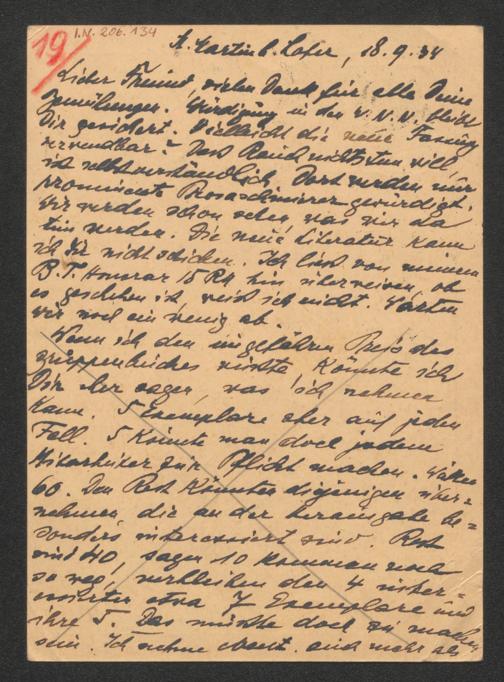 19/
I.N. 206.134
St. Martin b. Lofer, 18.9.34
Lieber Freund, vielen Dank für alle Deine
Bemühungen. Würdigung in den W.N.N. bleibt
Dir gesichert. Vielleicht die neue Fassung
verwendbar? Dass Rauch nichts tun will,
ist selbstverständlich. Dort werden nur
prominente Prosaschmierer gewürdigt.
Wir werden schon sehen, was wir da
tun werden. Die neue Literatur kann
ich Dir nicht schicken. Ich liess von meinem
B.T. Honorar 15 RM hin überweisen, ob
es geschehen ist, weiss ich nicht. Warten
wir noch ein wenig ab.
Wenn ich den ungefähren Preis des
Gruppenbuches wüsste, könnte ich
Dir eher sagen, was ich nehmen
kann. 5 Exemplare aber auf jeden
Fall. 5 könnte man doch jedem
Mitarbeiter zur Pflicht machen. Wären
60. Den Rest könnten diejenigen über=
nehmen die an der Herausgabe be=
sonders interessiert sind. Rest
sind 40, sagen 10 kommen noch
so weg, verbleiben den 4 inter=
essierten etwa 7 Exemplare und
ihre 5. Das müsste doch zu machen
sein. Ich nehme event. auch mehr als